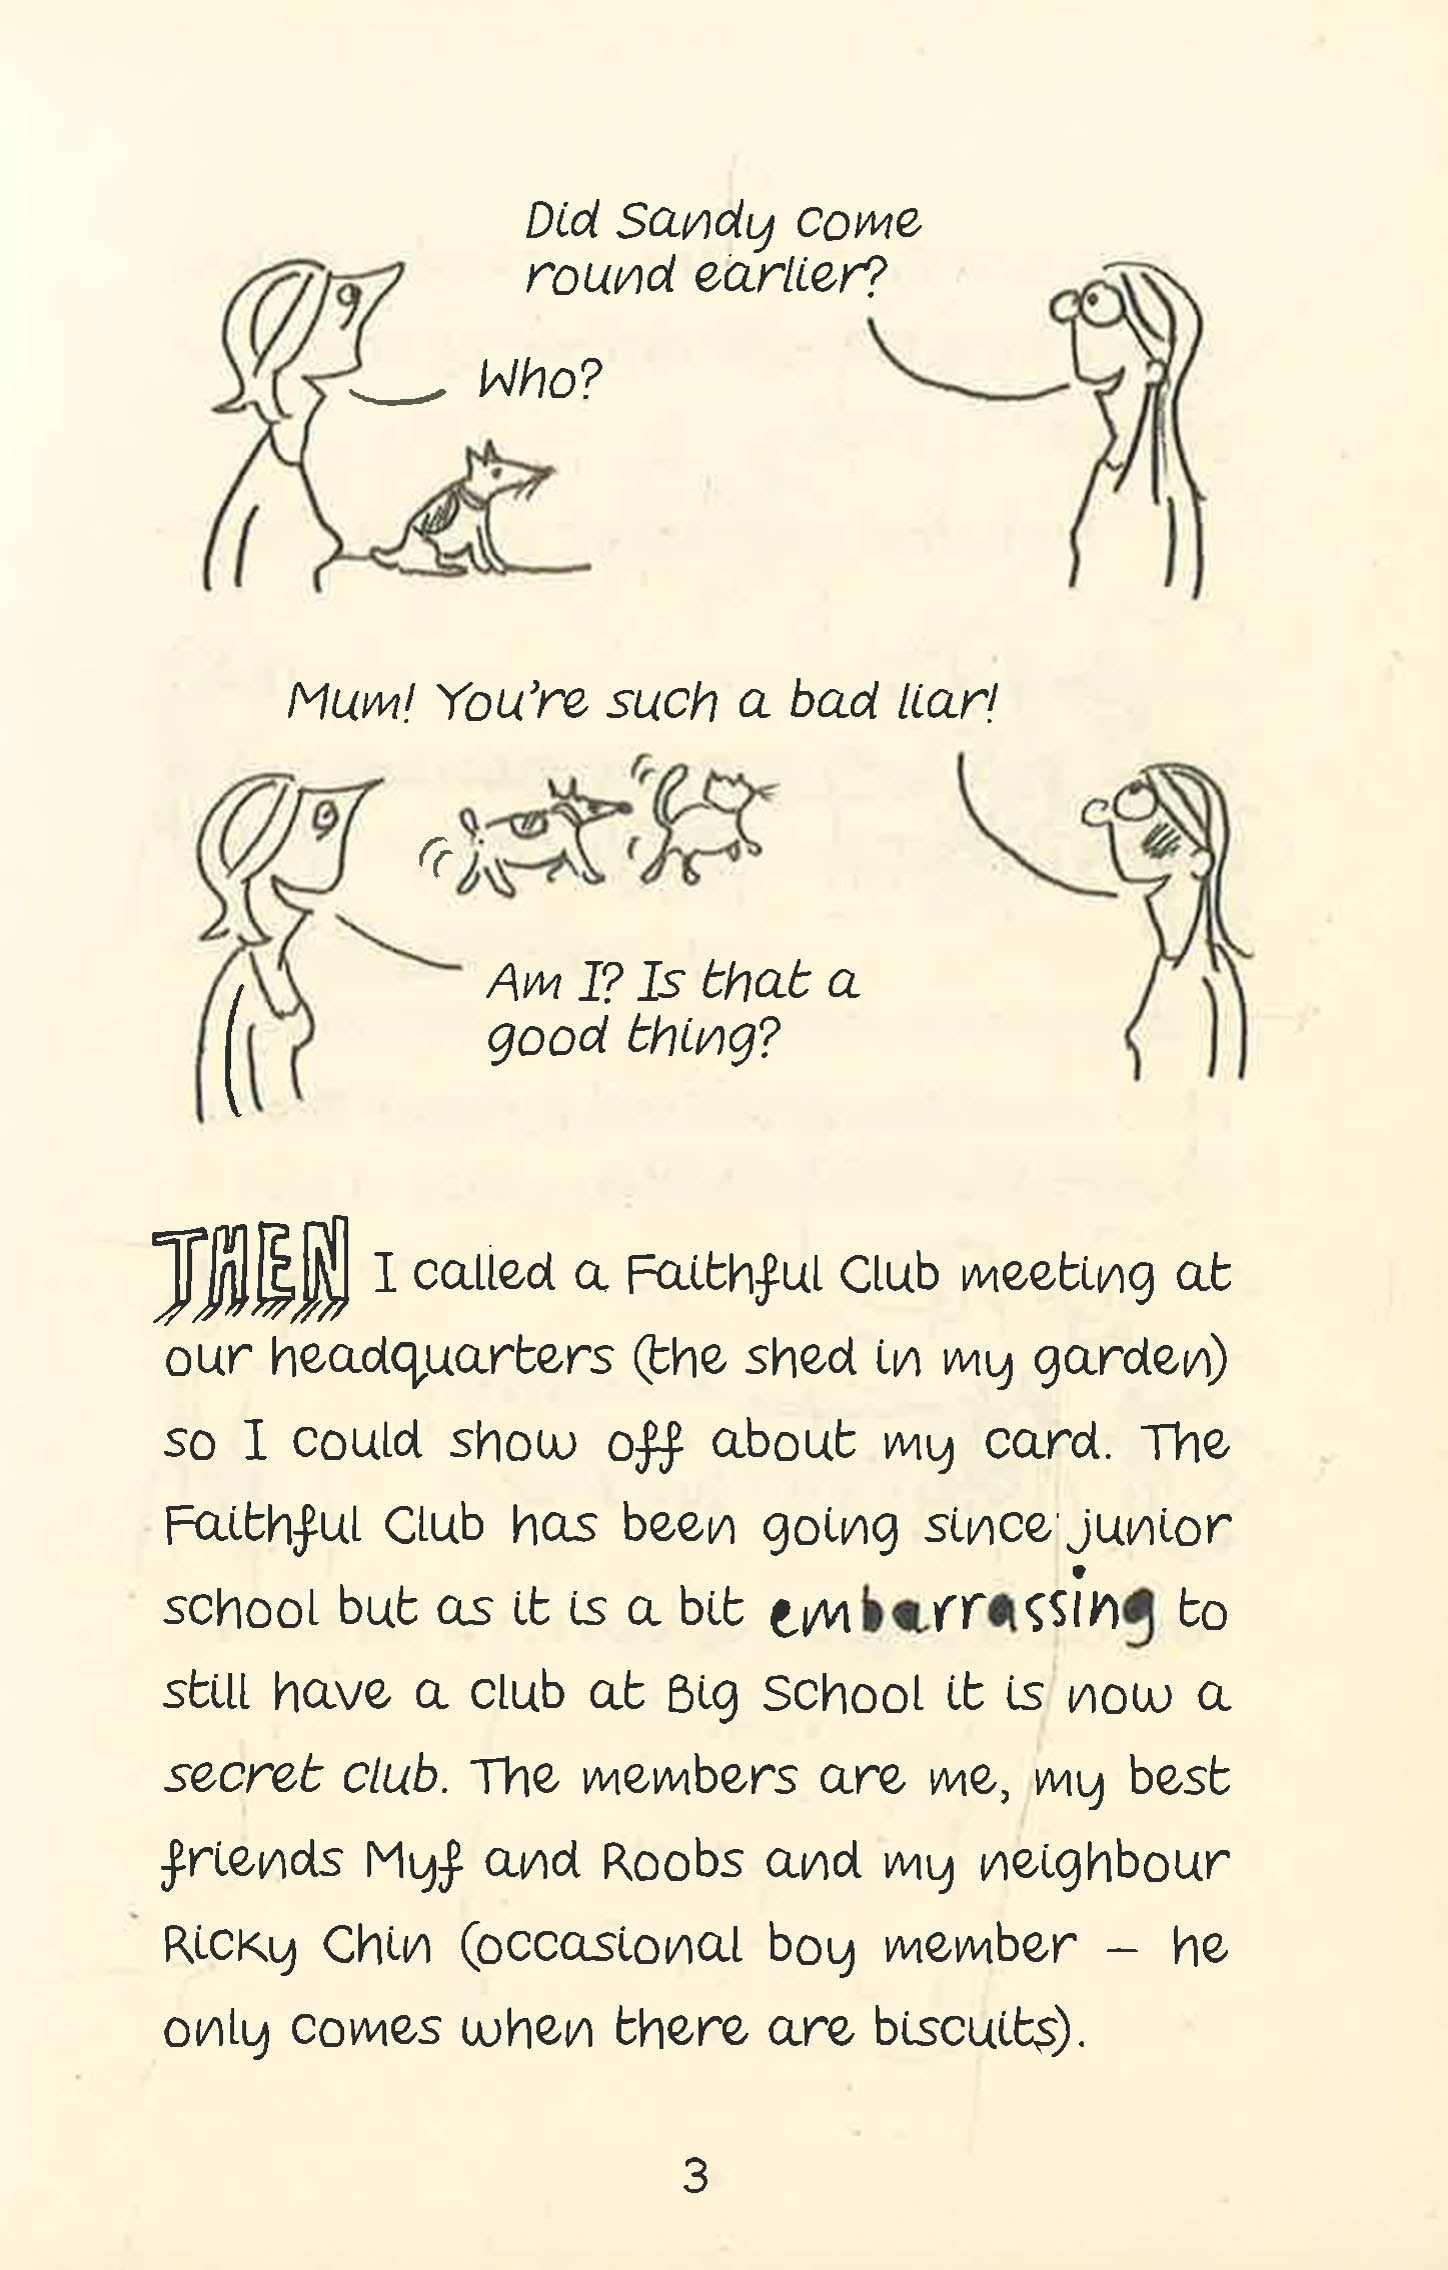 Did Sandy come
round earlier?
Who?
Mum! You're such a bad liar!
Am I? Is that a
good thing?
THEN I called a Faithful Club meeting at
our headquarters (the shed in my garden)
so I could show off about my card. The
Faithful Club has been going since junior
school but as it is a bit embarrassing to
still have a club at Big School it is now a
secret club. The members are me, my best
friends Myf and Roobs and my neighbour
Ricky Chin (occasional boy member – he
only comes when there are biscuits).
3